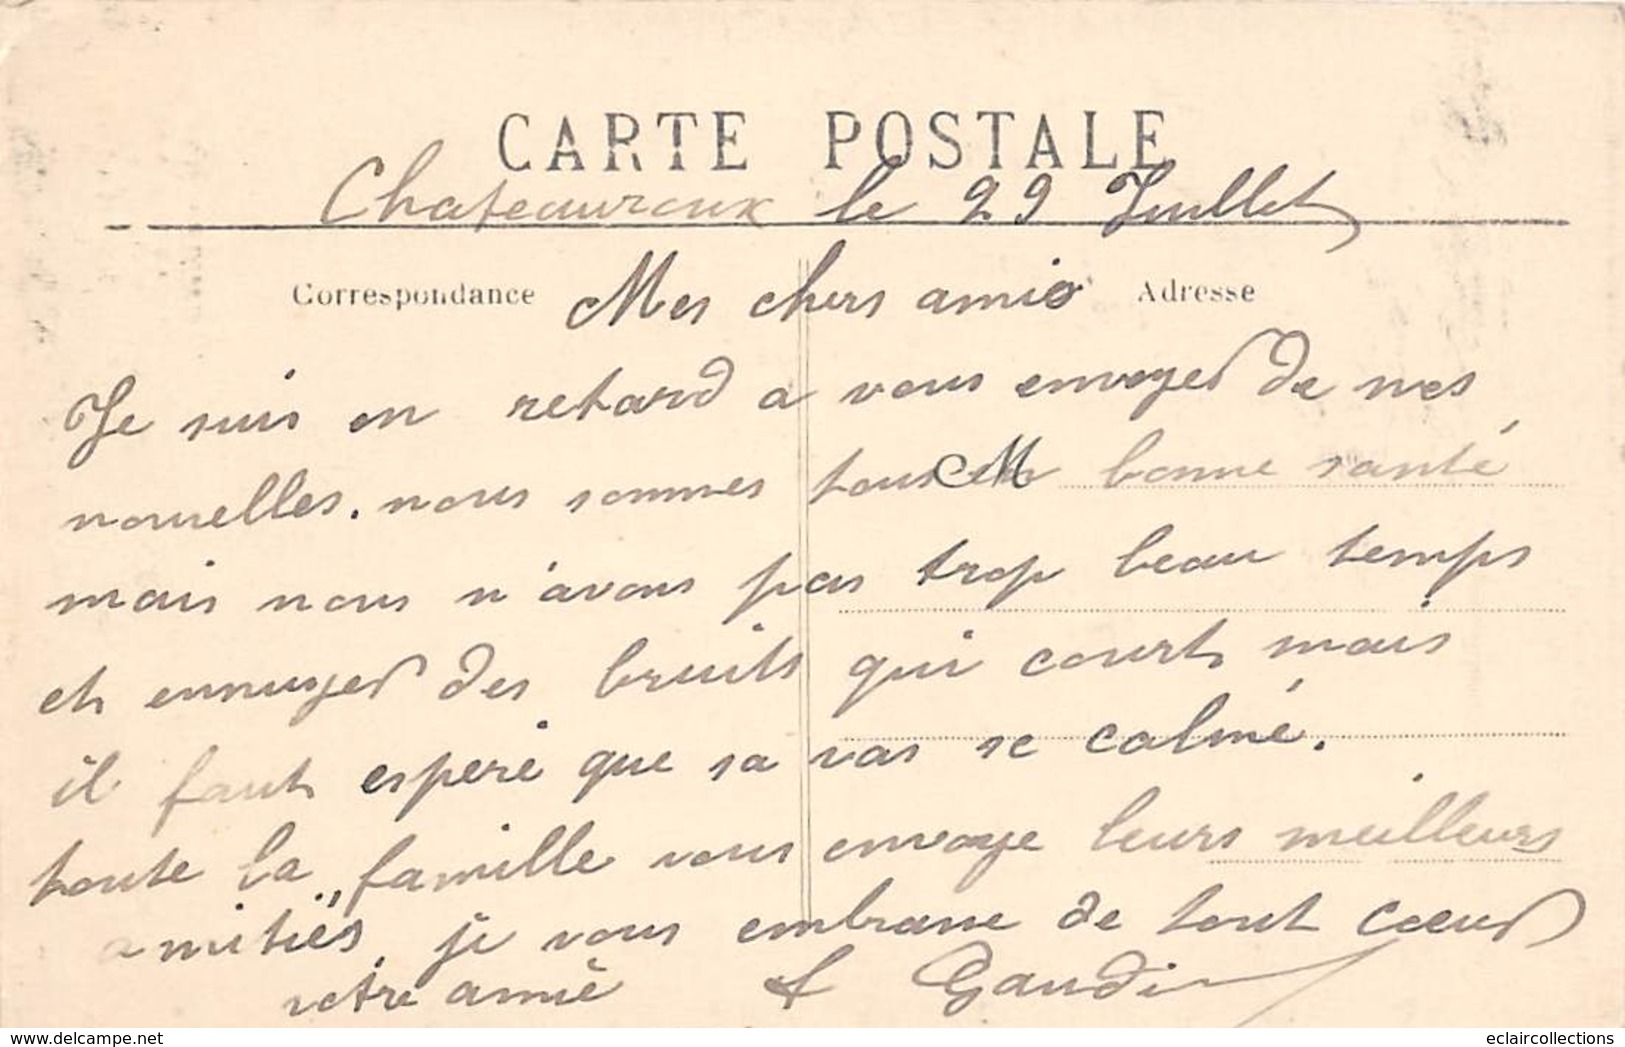 CARTE POSTALE
Chateauroux le 29 Juillet
Correspondance
Adresse
Mes chers amis
Je suis en retard a vous envoyer de nos
nouvelles. nous sommes tous en bonne santé
mais nous n'avons pas trop beau temps
et ennuyer des bruits qui court mais
il faut esperé que sa vas se calmé.
toute la famille vous envoye leurs meilleurs
amitiés je vous embrasse de tout coeur
votre amie
Gaudin
eclaircollections